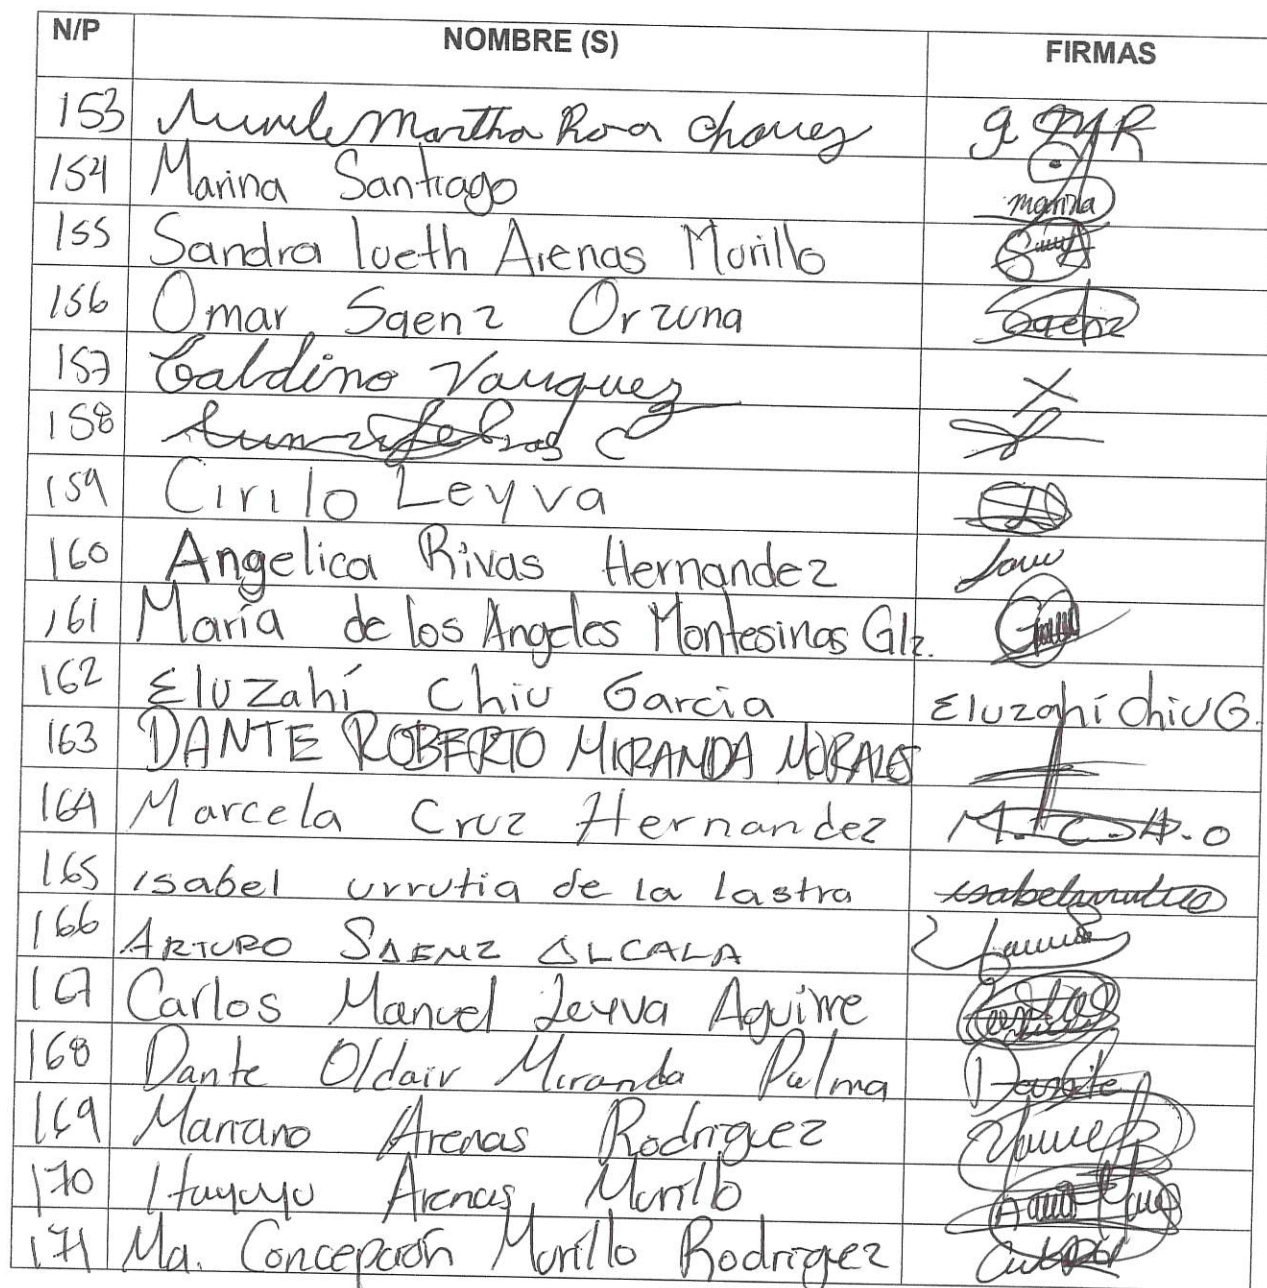 N/P NOMBRE (S) FIRMAS
153 Martha Rosa Chavez
154 Marina Santiago marina
155 Sandra Iveth Arenas Morillo
156 Omar Saenz Orzuna Saenz
157 Galdino Vauquez
158
159 Cirilo Leyva
160 Angelica Rivas Hernandez
161 María de los Angeles Montesinos Glz.
162 Eluzahí Chiu Garcia Eluzahí Chiu G.
163 DANTE ROBERTO MIRANDA MORALES
164 Marcela Cruz Hernandez
165 Isabel urrutia de la lastra
166 ARTURO SAENZ ALCALA
167 Carlos Manuel Leyva Aguirre
168 Dante Oldair Miranda Palma Dante
169 Mariano Arenas Rodriguez
170 Arenas Murillo
171 Ma. Concepción Murillo Rodriguez